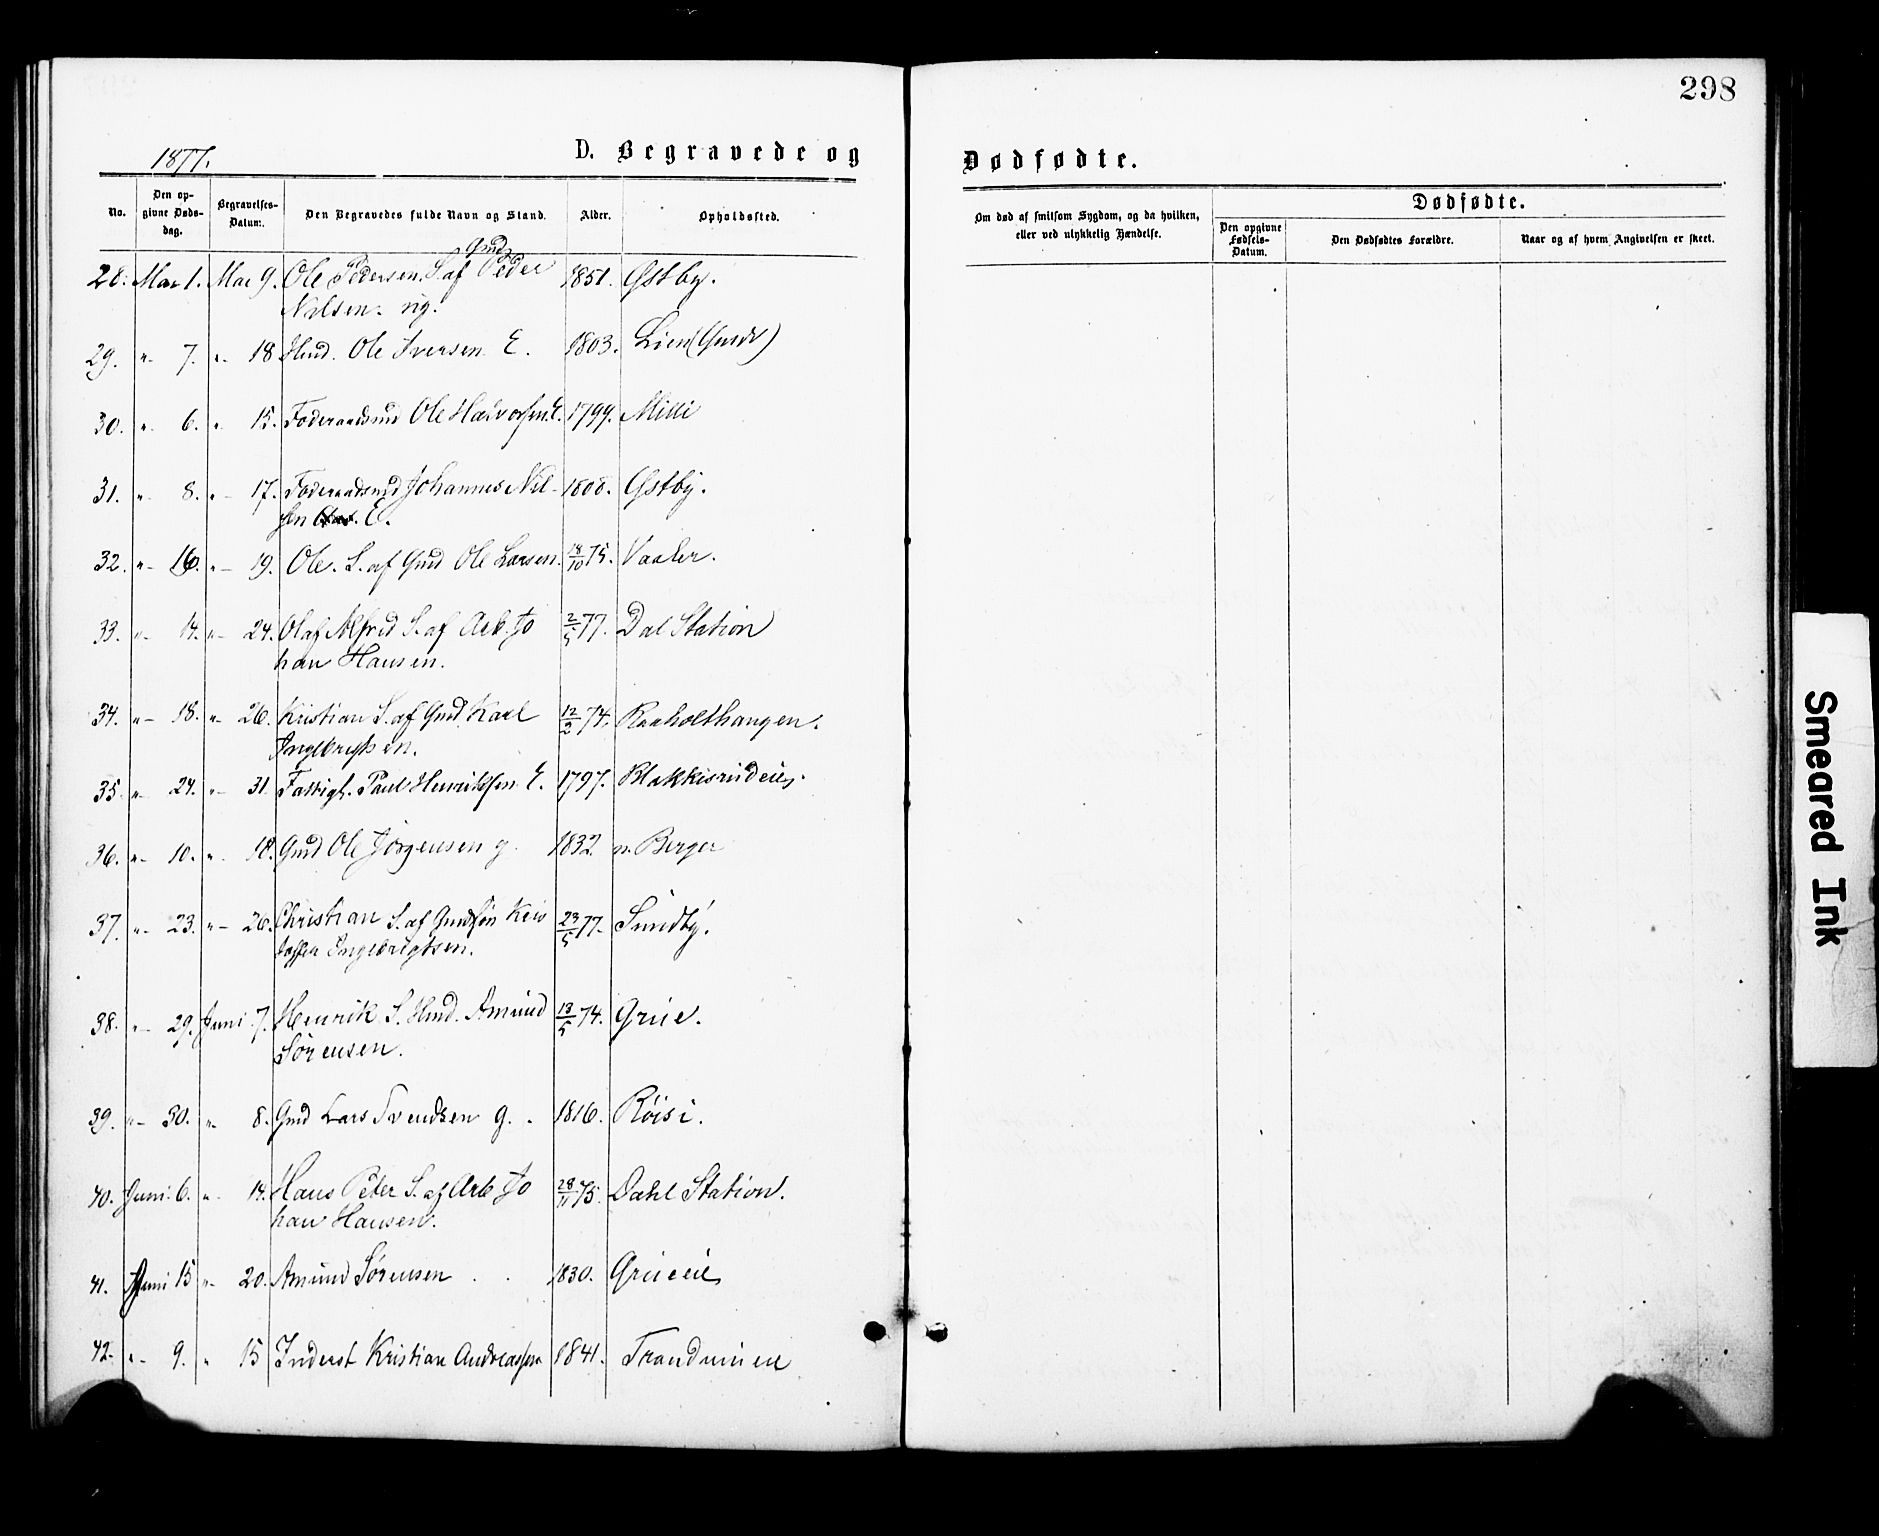 298
1877.
D. Begravede og
Dødfødte.
No.
Den opgivne Dødsdag.
Begravelses-Datum.
Den Begravedes fulde Navn og Stand.
Alder.
Opholdssted.
Om død af smitsom Sygdom, og da hvilken, eller ved ulykkelig Hændelse.
Dødfødte.
Den opgivne Fødsels-Datum.
Den Dødfødtes Forældre.
Naar og af hvem Angivelsen er skeet.
28. Mai 1. Mai 9. Ole Pedersen S. af Gmd Peder 1851. Østby.
Nilsen. ug.
29. " 7. " 18 Hmd. Ole Iversen E. 1803. Lien (Gmdr)
30. " 6. " 15.Føderaadsmd Ole Halvorsen. E. 1799. Milli
31. " 8. " 17. Føderaadsmd Johannes Nil- 1808. Østby.
sen E.
32. " 16. " 19. Ole. S. af Gmd Ole Larsen. 18/10 75. Vaaler.
33. " 14. " 24. Olaf Alfred S. af Arb. Jo 2/5 77. Dal Station
han Hansen.
34. " 18. " 26. Kristian S. af Gmd. Karl 12/2 74. Raaholthaugen.
Ingebrigtsen.
35. " 24. " 31 Fattigl. Paul Henriksen E. 1797. Blakkisrudeie.
36. " 10. " 18. Gmd Ole Jörgensen g. 1832. n. Berger
37. " 23. " 26. Christian S. af Gmdsön Kris 23/5 77. Sundby.
toffer Ingebrigtsen.
38. " 29. Juni 7. Henrik S. Hmd. Amund 13/5 74. Grue.
Sörensen.
39. " 30. " 8. Gmd Lars Svendsen g. 1816. Röisi.
40. Juni 6. " 14. Hans Peter S. af Arb Jo 28/11 75. Dahl Station.
han Hansen.
41. Juni 15 " 20. Amund Sørensen 1830. Grueeie
42. " 9. " 15 Inderst Kristian Andreassen 1841. Trandumeie
Smeared Ink